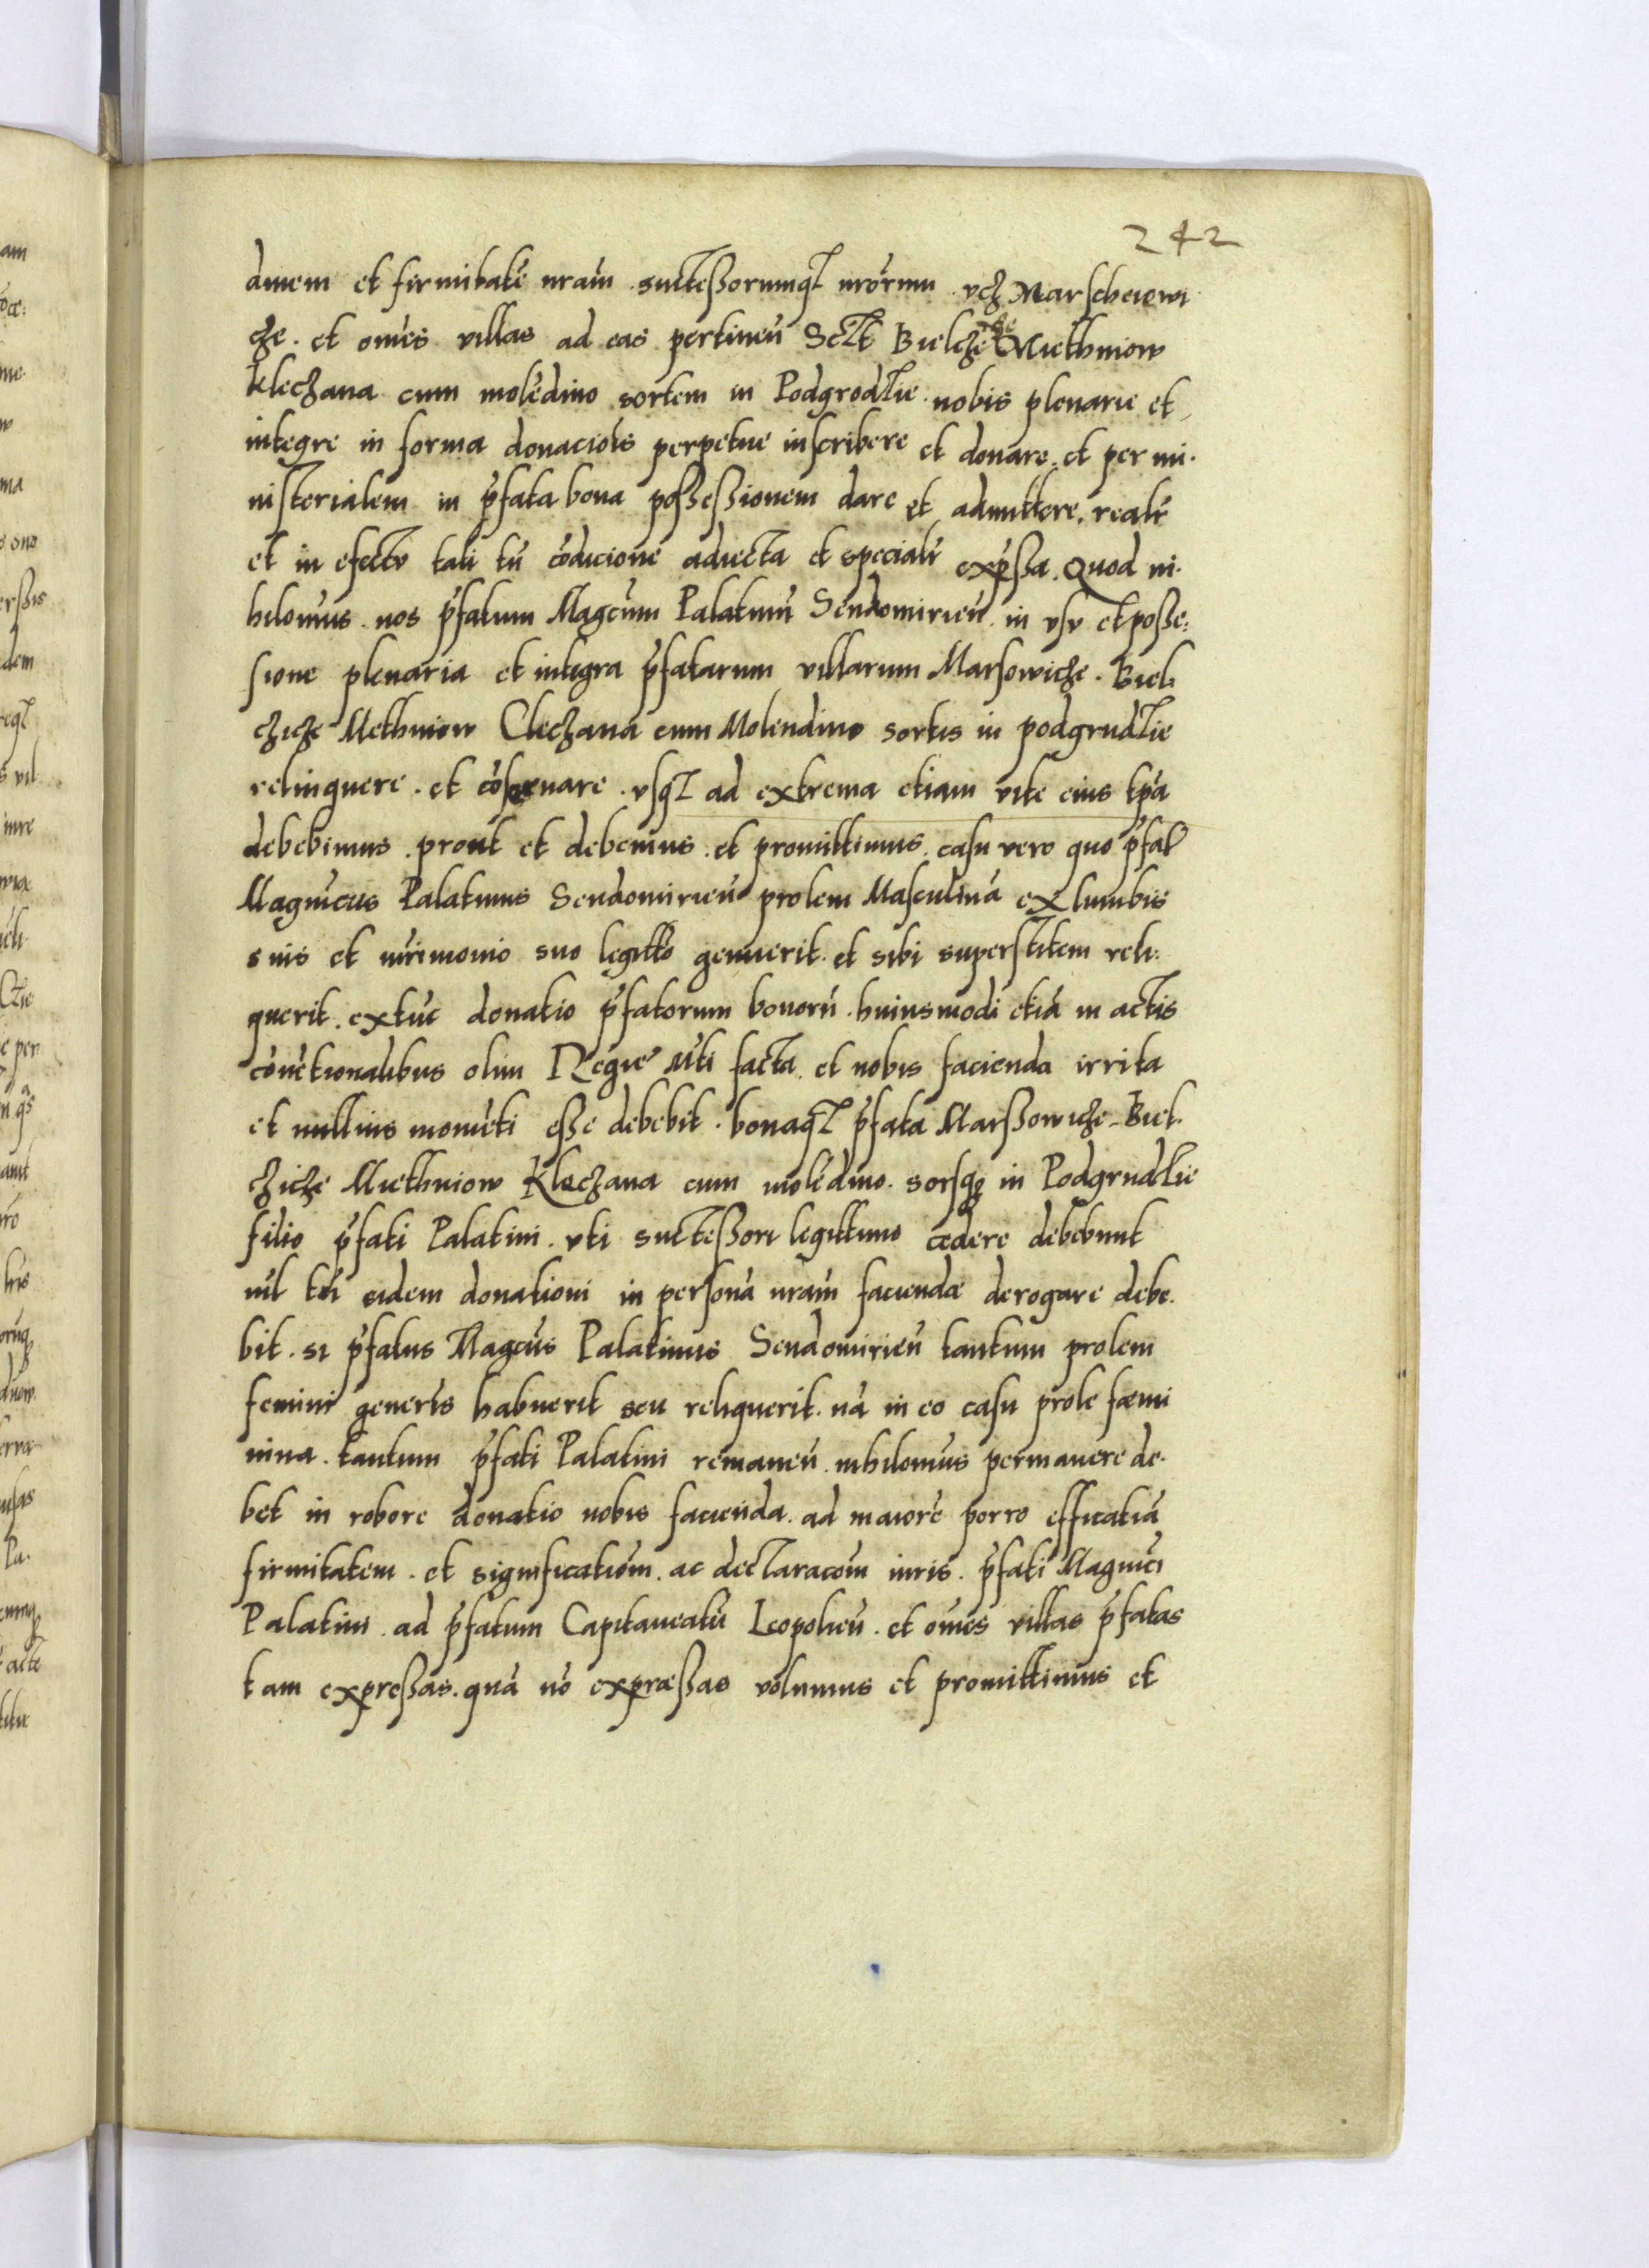 242
dinem et firmitatē nrām successorumq3 nrōrum vcz Marscheiowi
cze. et omēs villas ad eas pertineñ Sclt Bielcze Miethniow
Kleczana cum molēdino sortem in Podgrodzie. nobis plenarie et
integre in forma donaciōis perpetue inscribere et donare. et per mi-
nisterialem in pfata bona possessionem dare et admittere. realr
et in efectv tali tn̄ cōdicione adiecta et specialr expssa. Quod ni-
hilomīus. nos pfatum Magcūm Palatinū Sendomirieñ. in vsv et posse:
sione plenaria et integra pfatarum villarum Marsowicze. Biel
czicze Methniow Cleczana cum Molendino sortis in podgrudzie
relinquere. et cōseruare. vsq3 ad extrema etiam vite eius tpā
debebimus. prout et debemus. et promittimus. casu vero quo pfat
Magnīcus Palatinus Sendomirieñ prolem Masculinā ex lumbis
suis et mrīmonio suo legitto genuerit. et sibi superstitem reli:
querit. extūc donatio pfatorum bonorū. huiusmodi etiā in actis
cōuētionalibus olim Regie Mti facta. et nobis facienda irrita
et nullius momēti esse debebit. bonaq3 pfata Marssowicze. Biel-
czicze Miethniow Kleczana cum molēdino. sorsq3 in Podgrudzie
filio pfati Palatini. vti successori legittimo cedere debebunt
nil tn̄ eidem donationi in personā nrām faciendae derogare debe.
bit. si pfatus Magcūs Palatinus Sendomirieñ tantum prolem
femini generis habuerit seu reliquerit. nā in eo casu prole faemi
nina. tantum pfati Palatini remaneñ. nihilomīus permanere de-
bet in robore donatio nobis facienda. ad maiorē porro efficatiā
firmitatem. et significatiōm. ac declaracōm iuris. pfati Magnīci
Palatini. ad pfatum Capitaneatū Leopolieñ. et omēs villas pfatas
tam expressas. quā nō expraessas volumus et promittimus et